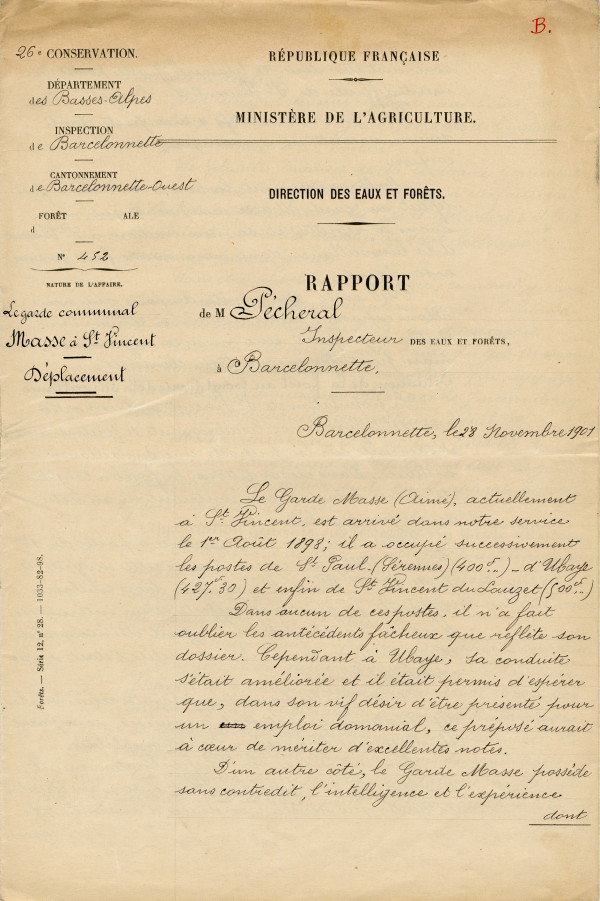 B.
26e CONSERVATION.
DÉPARTEMENT
des Basses-Alpes
INSPECTION
de Barcelonnette
CANTONNEMENT
de Barcelonnette-Ouest
FORÊT ALE
d
N° 452
NATURE DE L'AFFAIRE.
Le garde communal
Masse à St Vincent
Déplacement
RÉPUBLIQUE FRANÇAISE
MINISTÈRE DE L'AGRICULTURE.
DIRECTION DES EAUX ET FORÊTS.
RAPPORT
de M Pécheral
Inspecteur DES EAUX ET FORÊTS,
à Barcelonnette,
Barcelonnette, le 28 Novembre 1901
Le Garde Masse (Aimé), actuellement
à St. Vincent, est arrivé dans notre service
le 1er Août 1898; il a occupé successivement
les postes de St Paul-(Sérennes) (400f..) _ d'Ubaye
(427f.30) et enfin de St Vincent du Lauzet (500f..)
Dans aucun de ces postes, il n'a fait
oublier les antécédents fâcheux que reflète son
dossier. Cependant à Ubaye, sa conduite
s'était améliorée et il était permis d'espérer
que, dans son vif désir d'être présenté pour
un emploi domanial, ce préposé aurait
à cœur de mériter d'excellentes notes.
D'un autre côté, le Garde Masse possède
sans contredit, l'intelligence et l'expérience
dont
Forêts. — Série 12, n° 28. — 1033-82-98.